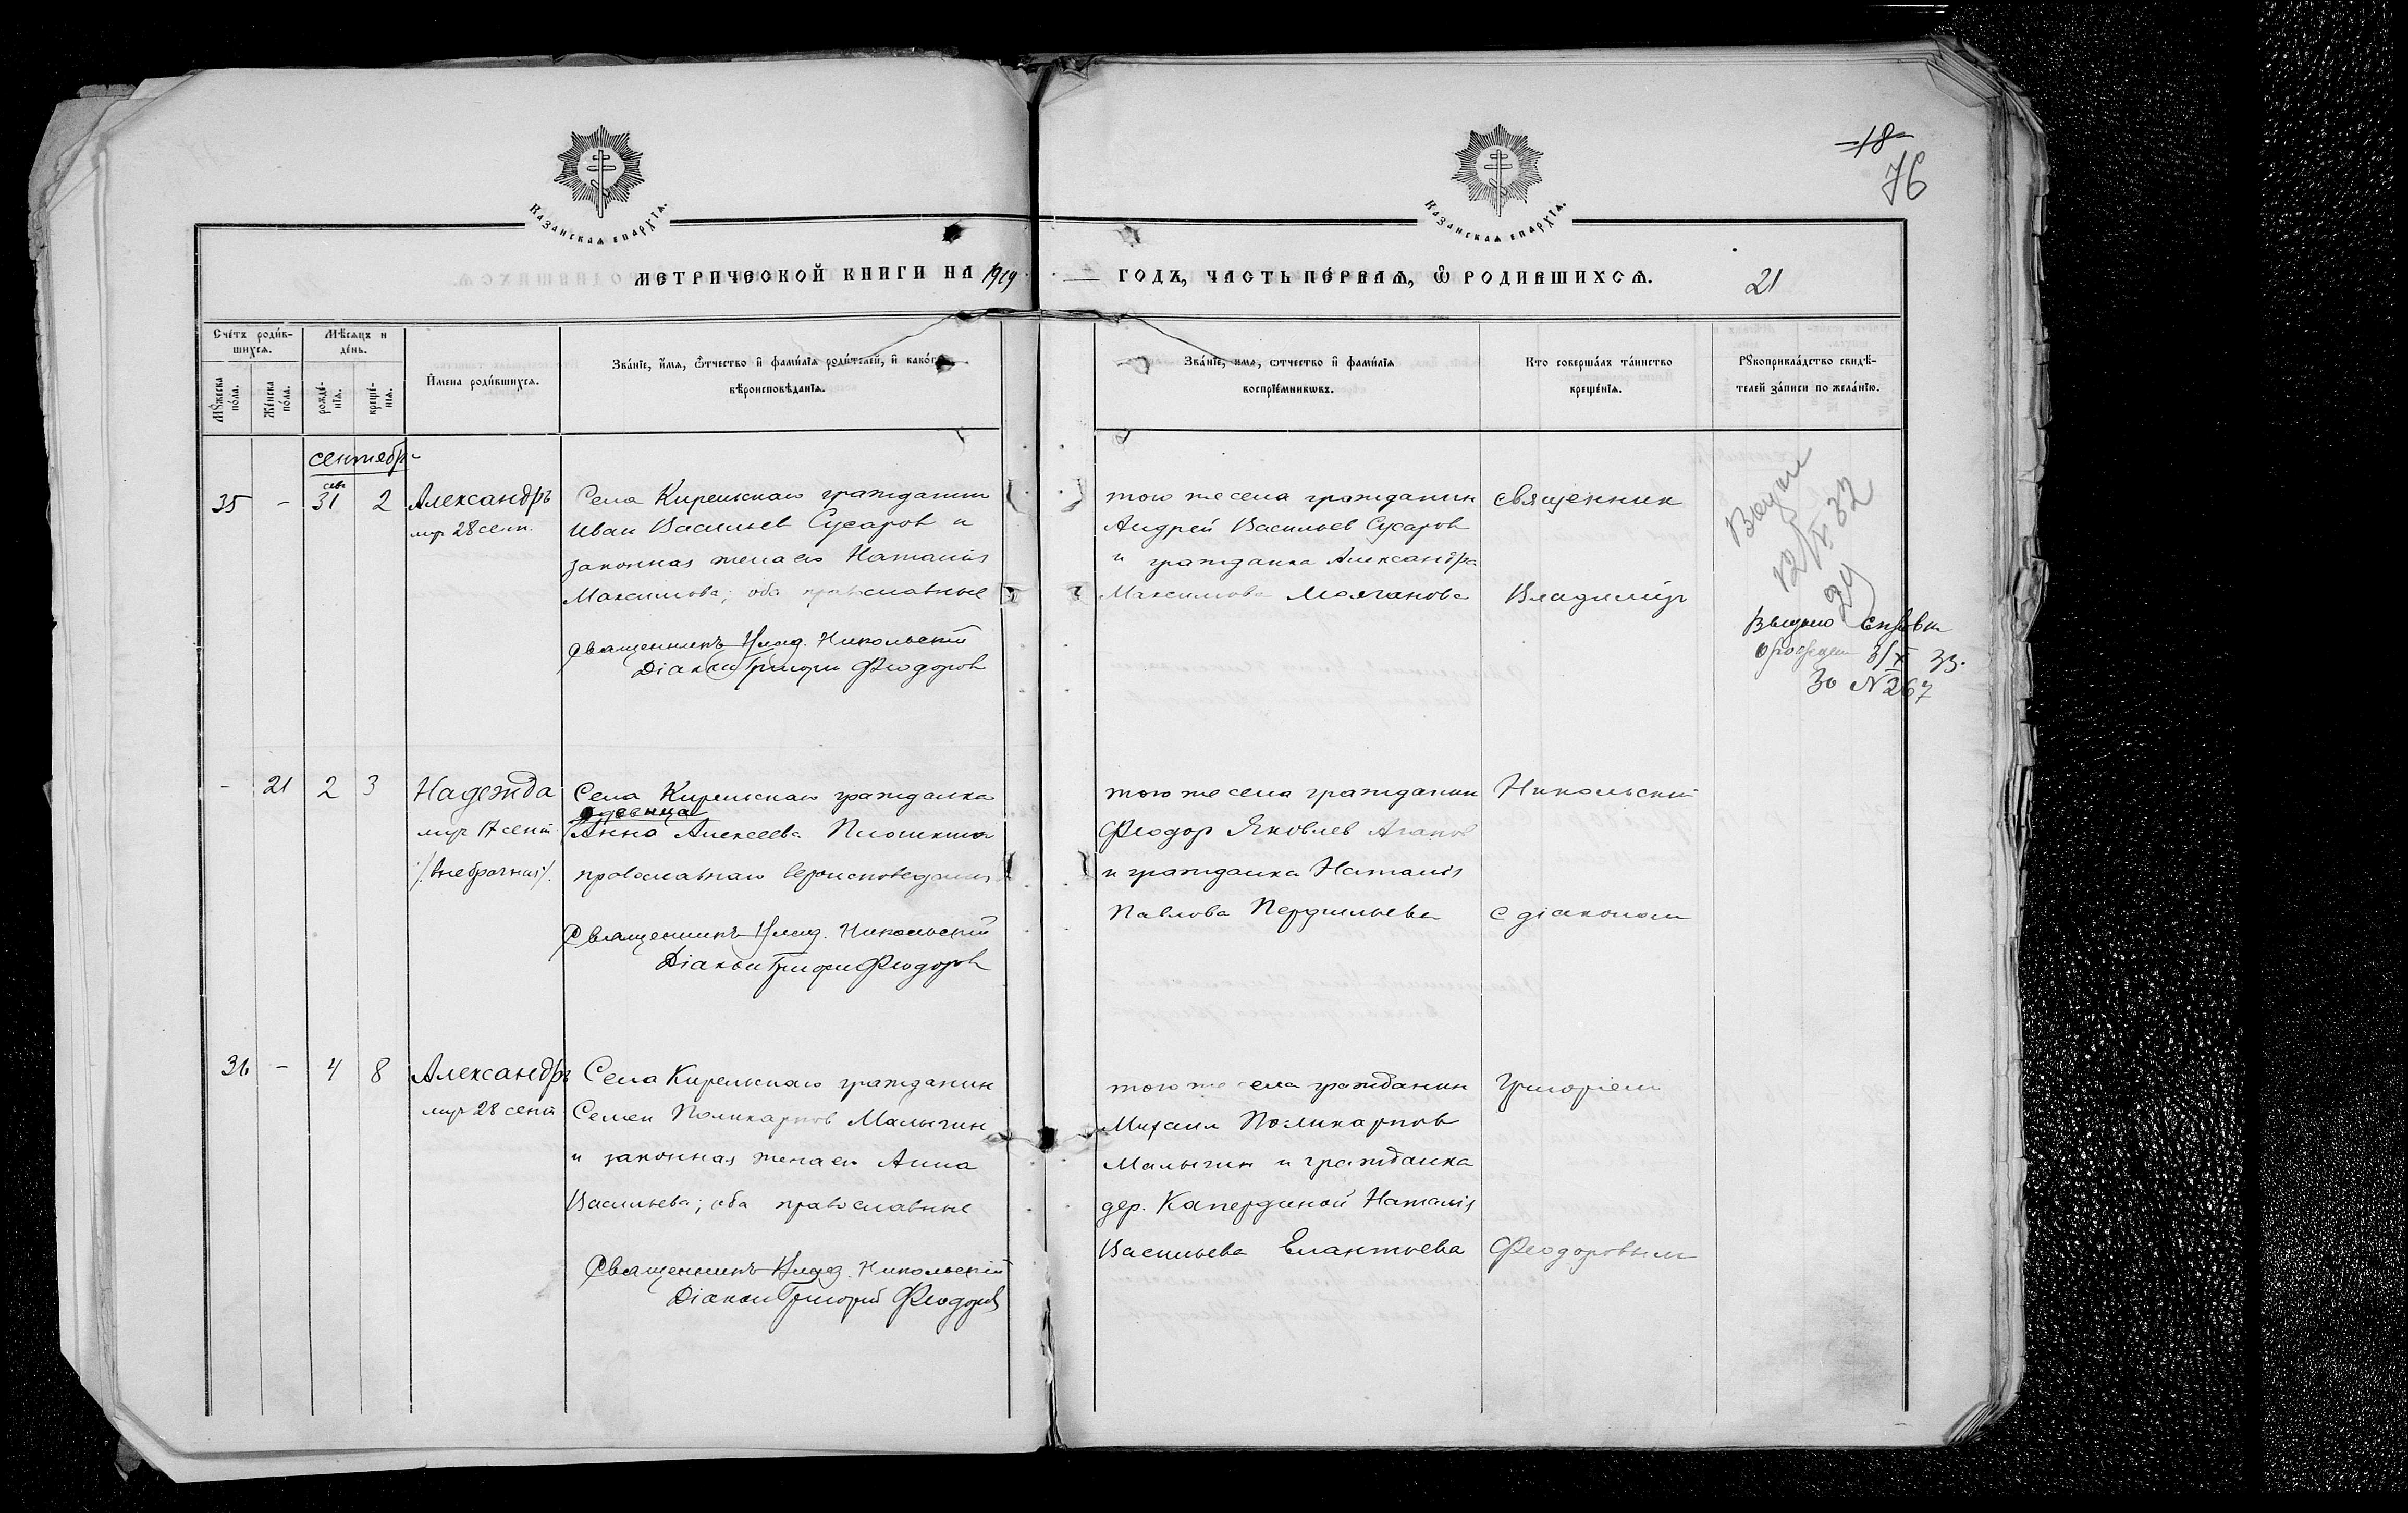 -18-
76
Казанская епархїѧ.
Казанская епархїѧ.
МЕТРИЧЕСКОЙ КНИГИ НА 1919
ГОДЪ, ЧАСТЬ ПЕРВАѦ, Ѿ РОДИВШИХСѦ.
21
Счétъ родив-
шихсѧ.
Мѣсѧцъ и
день.
Мꙋжеска
пола.
Женска
пола.
рожде-
нїѧ.
креще-
нїѧ.
Имена родившихсѧ.
Званїе, имѧ, ѿчество и фамилїѧ родителей, и какогѡ
вѣроисповѣданїѧ.
Званїе, имѧ, ѿчество и фамилїѧ
воспрїемникѡвъ.
Кто совершалъ таинство
крещенїѧ.
Рꙋкоприкладство свидѣ-
телей записи по желанїю.
сентябр
35 - 31 2 Александръ
мчр 28 сент.
Села Кирельскаго гражданин
Иван Васильев Сусаров и
законная жена его Наталія
Максимова; оба православные
Священникъ Влад. Никольскій
Діакон Григорий Феодоров
того же села гражданин
Андрей Васильев Сусаров
и гражданка Александра
Максимова Молчанова
священник
Владимір
12/X 32
Выдано справка
о рожден 3/X 33.
За №267
- 21 2 3 Надежда
муч 17 сент
/Внебрачная/.
Села Кирельскаго гражданка
девица
Анна Алексеева Плошкина
православнаго вероисповедания
Священникъ Влад. Никольскій
Діакон Григорий Феодоров
того же села гражданин
Феодор Яковлев Агапов
и гражданка Наталія
Павлова
Никольский
с діаконом
36 - 4 8 Александръ
муч 28 сент
Села Кирельскаго гражданин
Семен Поликарпов Малыгин
и законная жена его Анна
Васильева; оба православные
Священникъ Влад. Никольскій
Діакон Григорий Феодоров
того же села гражданин
Михаил Поликарпов
Малыгин и гражданка
дер. Капердиной Наталія
Васильева Елантьева
Григоріем
Феодоровым